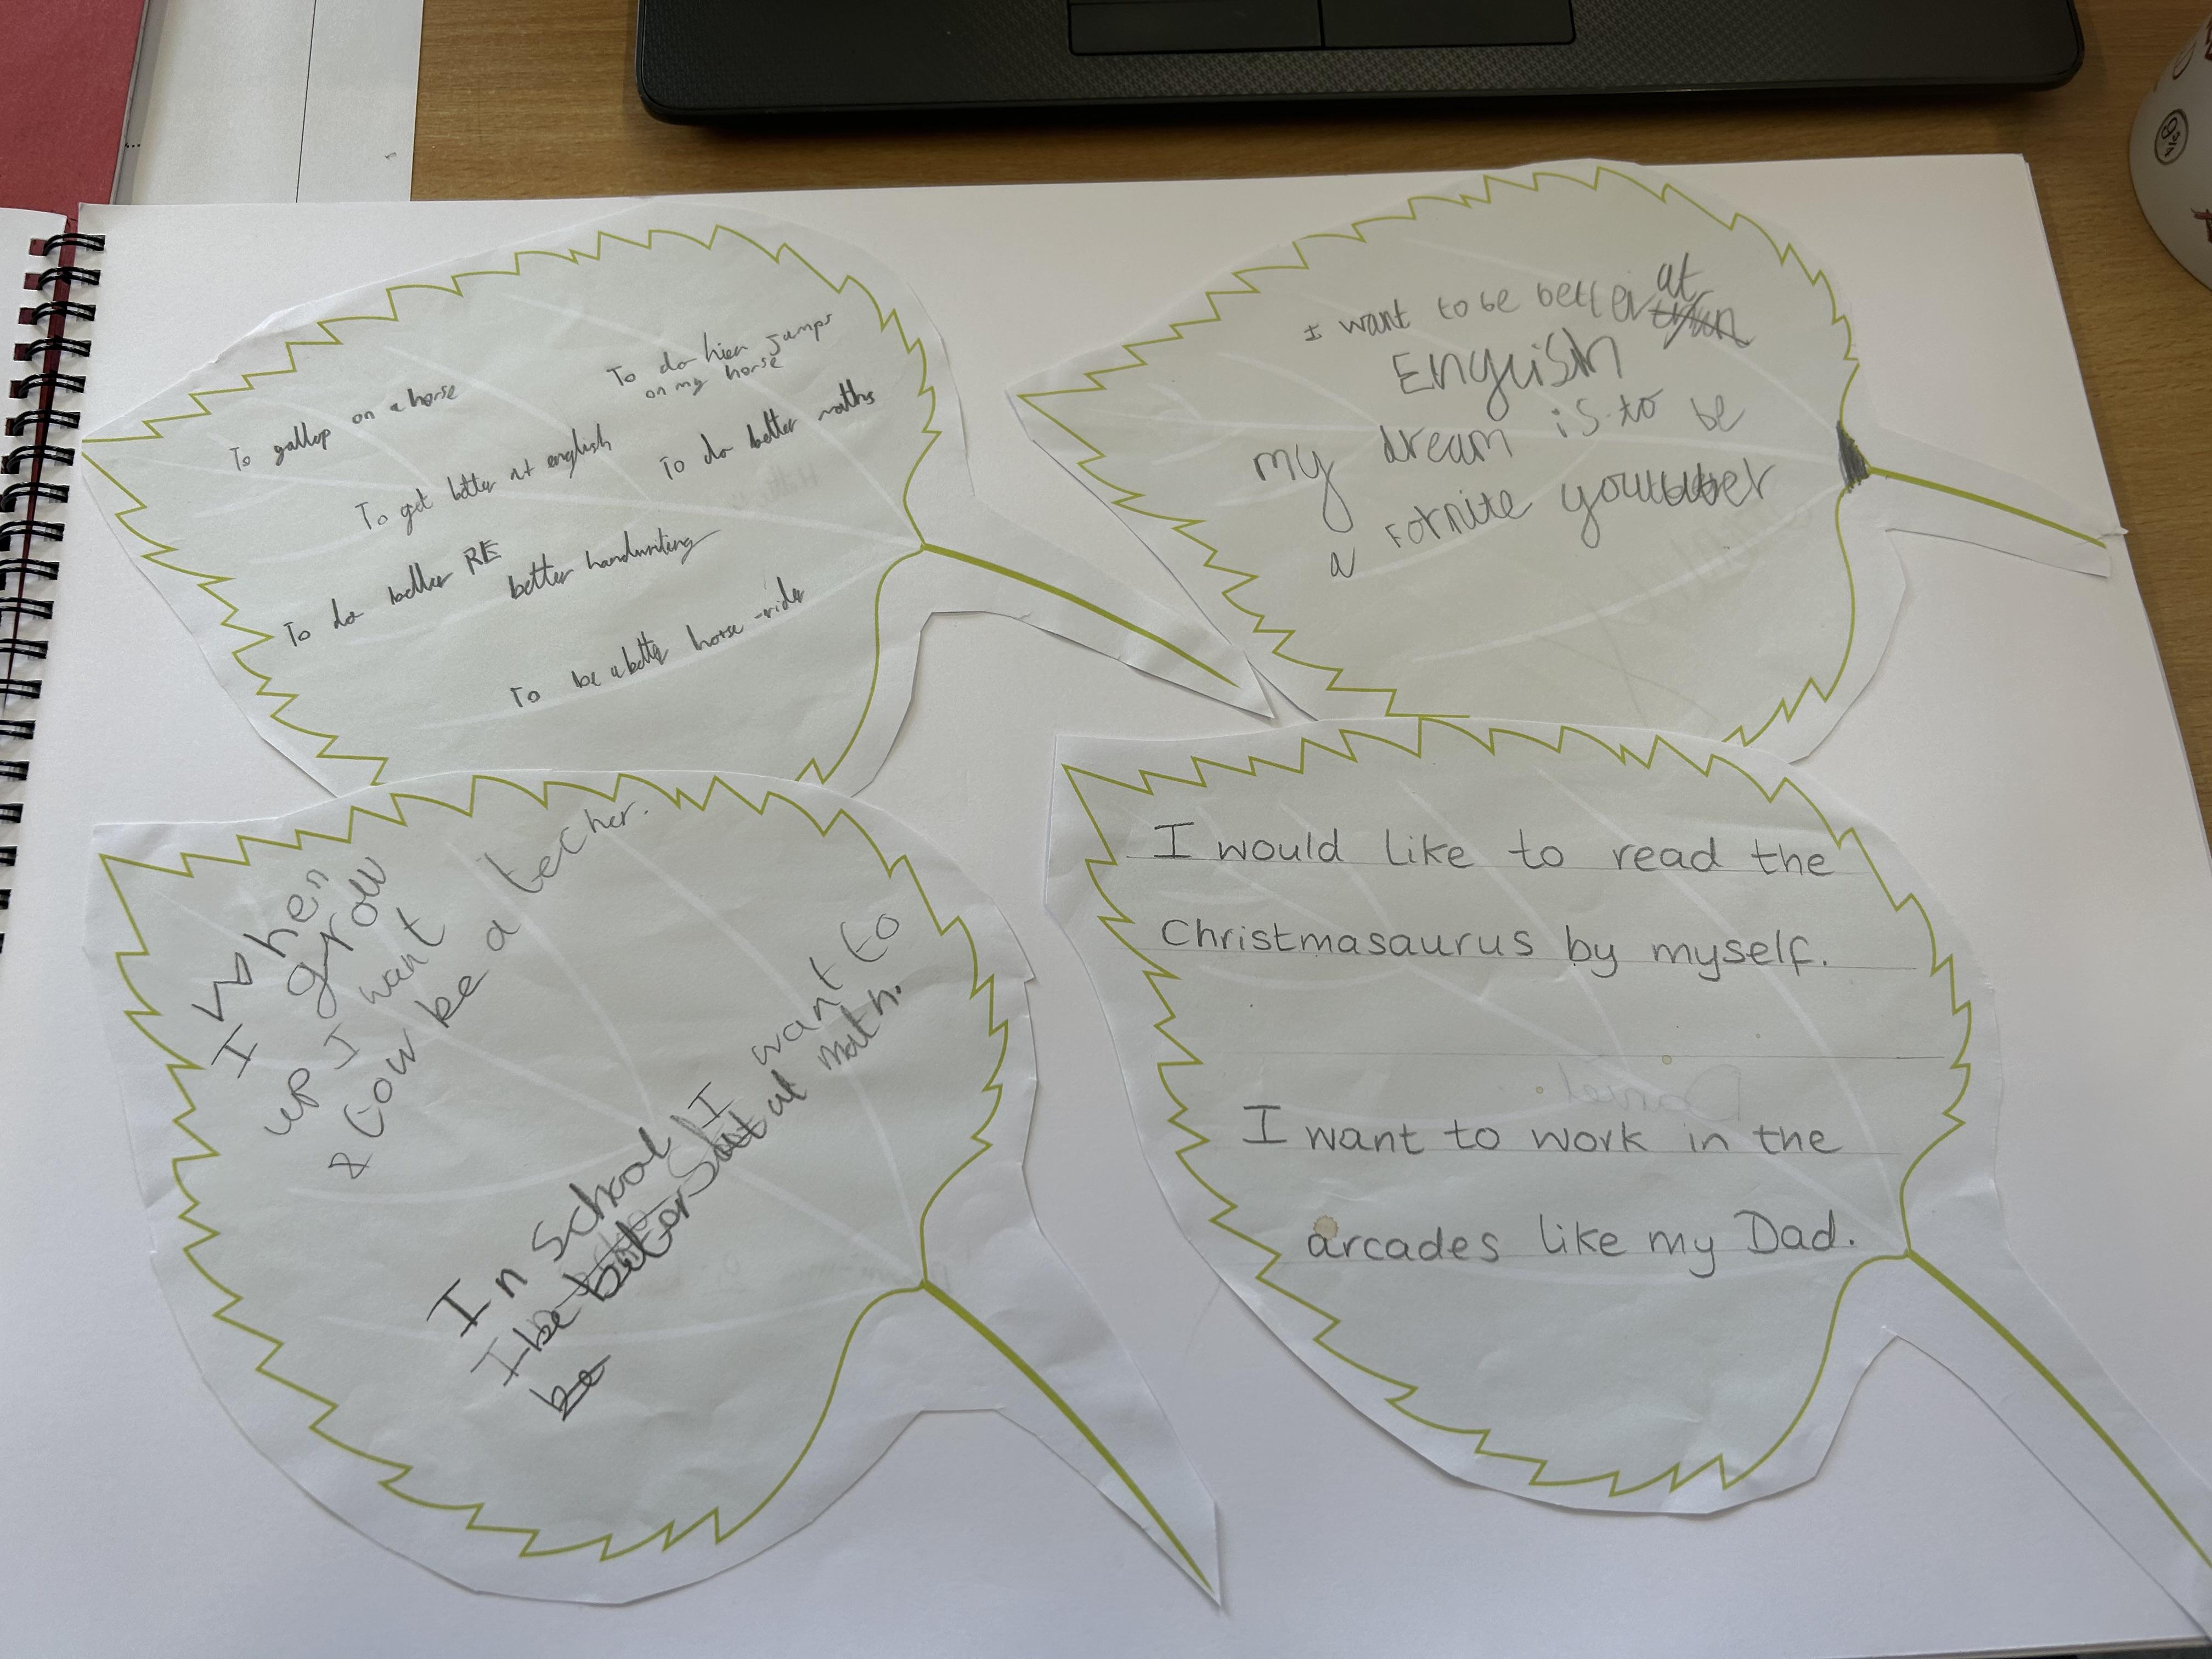 To gallop on a horse
To do hier jumps
on my horse
To get better at english
To do better maths
To do better RE
better handwriting
To be a better horse-rider
I want to be better at
English
my dream is to be
a Fornite
I When
grow
up I want
be a techer.
In School I want to
be
at math.
I would like to read the
Christmasaurus by myself.
I want to work in the
arcades like my Dad.